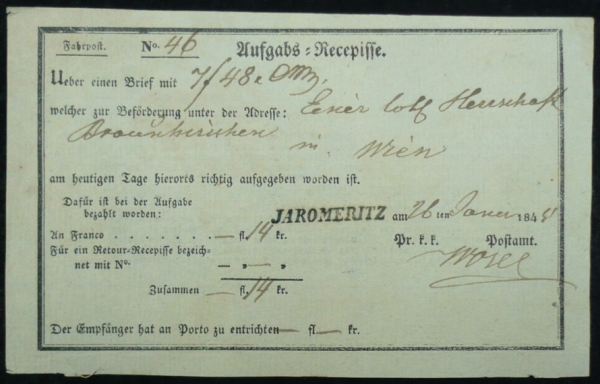 Fahrpost. No. 46 Aufgabs-Recepisse.
Ueber einen Brief mit 7 f 48 x
welcher zur Beförderung unter der Adresse: Einer löbl Herrschaft
in Wien
am heutigen Tage hierorts richtig aufgegeben worden ist.
Dafür ist bei der Aufgabe
bezahlt worden:
JAROMERITZ am 26 ten Januer 1848
An Franco . . . . . . . — fl. 14 kr.
Pr. k. k. Postamt.
Für ein Retour-Recepisse bezeich-
net mit No. — „ — „
Zusammen — fl. 14 kr.
Der Empfänger hat an Porto zu entrichten — fl. — kr.